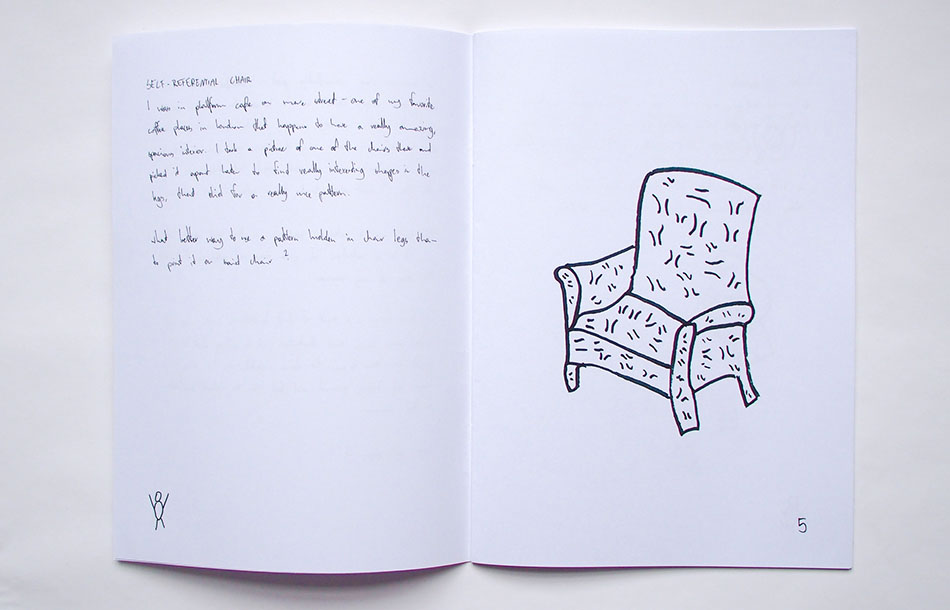 SELF-REFERENTIAL CHAIR
I was in platform cafe on mare street - one of my favorite
coffee places in london that happens to have a really amazing,
spacious interior. I took a picture of one of the chairs there and
picked it apart later to find really interesting shapes in the
legs, that did for a really nice pattern.
what better way to use a pattern hidden in chair legs than
to print it on said chair?
5